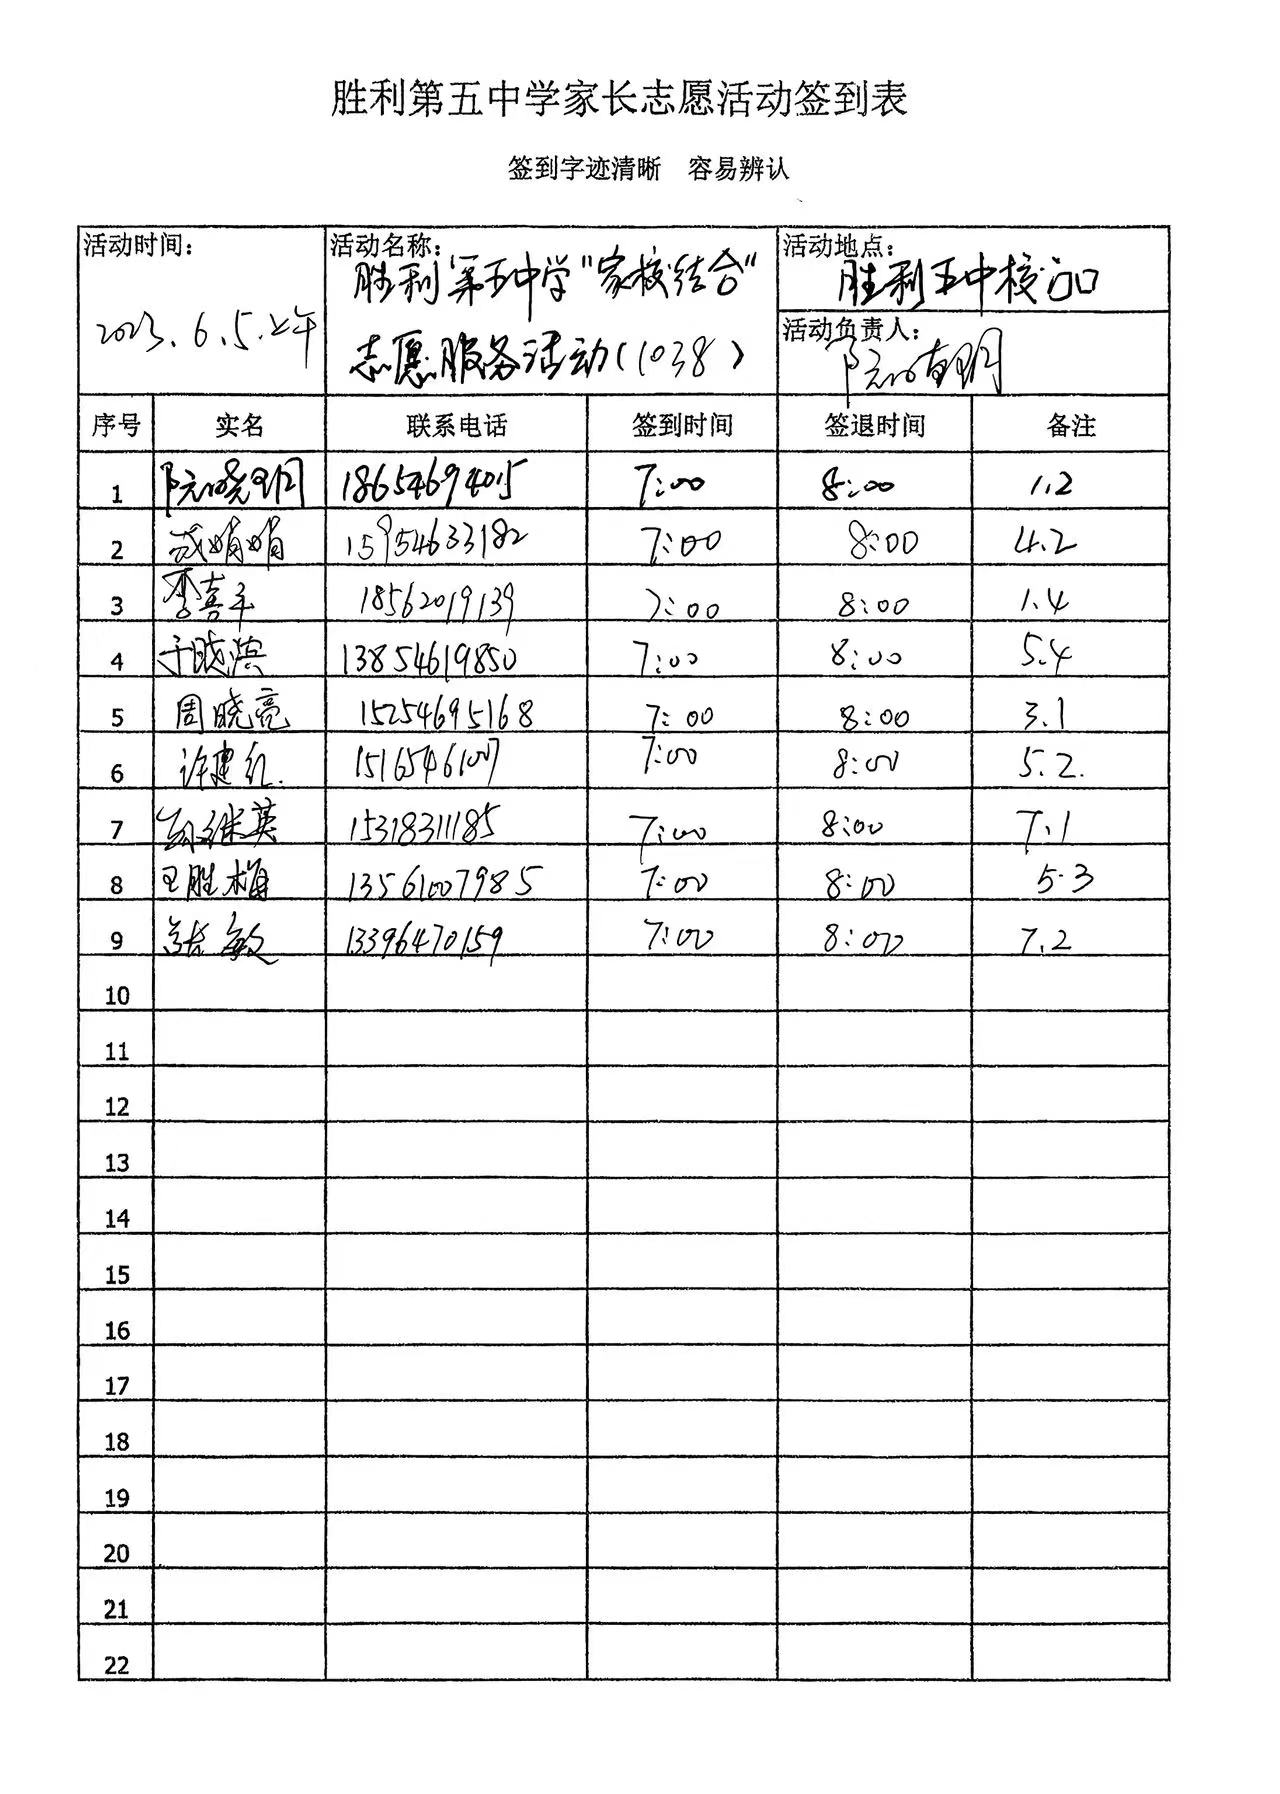 胜利第五中学家长志愿活动签到表
签到字迹清晰 容易辨认
活动时间: 活动名称: 活动地点:
胜利第五中学"家校结合" 胜利五中校门口
2023.6.5.上午 活动负责人:
志愿服务活动(1038)
序号 实名 联系电话 签到时间 签退时间 备注
1 18654694015 7:00 8:00 1.2
2 成娟娟 15954633182 7:00 8:00 4.2
3 李喜平 18562019139 7:00 8:00 1.4
4 于晓滨 13854619850 7:00 8:00 5.4
5 周晓亮 15254695168 7:00 8:00 3.1
6 许建红. 15165461007 7:00 8:00 5.2.
7 孙继英 15318311185 7:00 8:00 7.1
8 王胜梅 13561007985 7:00 8:00 5.3
9 张敏 13396470159 7:00 8:00 7.2
10
11
12
13
14
15
16
17
18
19
20
21
22